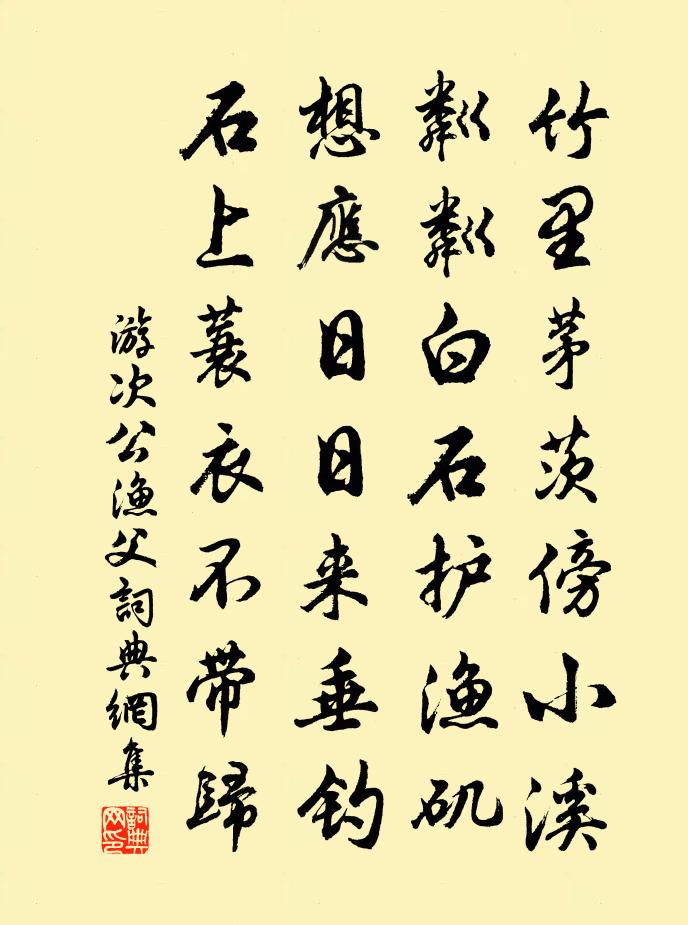 竹里茅茨傍小溪
粼粼白石护渔矶
想應日日来垂钓
石上蓑衣不带歸
游次公漁父詞典網集
詞典網印